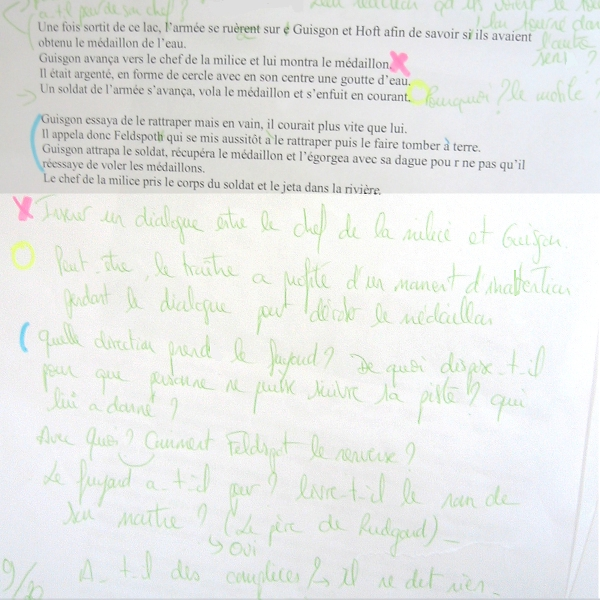 a-t-il peur de son chef ?
Une fois sortit de ce lac, l'armée se ruèrent sur Guisgon et Hoft afin de savoir si ils avaient
obtenu le médaillon de l'eau.
l'autre
sens ?
Guisgon avança vers le chef de la milice et lui montra le médaillon.
Il était argenté, en forme de cercle avec en son centre une goutte d'eau.
Un soldat de l'armée s'avança, vola le médaillon et s'enfuit en courant.
Pourquoi ? le mobile ?
Guisgon essaya de le rattraper mais en vain, il courait plus vite que lui.
Il appela donc Feldspoth qui se mis aussitôt à le rattraper puis le faire tomber à terre.
Guisgon attrapa le soldat, récupéra le médaillon et l'égorgea avec sa dague pou r ne pas qu'il
réessaye de voler les médaillons.
Le chef de la milice pris le corps du soldat et le jeta dans la rivière.
Insérer un dialogue entre le chef de la milice et Guisgon.
Peut-être, le traître a profité d'un moment d'inattention
pendant le dialogue pour dérober le médaillon
Quelle direction prend le fuyard ? De quoi dispose-t-il
pour que personne ne puisse suivre sa piste ? qui
lui a donné ?
Avec quoi ? Comment Feldspot le renverse ?
Le fuyard a-t-il peur ? livre-t-il le nom de
son maître ? (Le père de Rudgard)
↳ oui
9/20
A-t-il des complices ? ↳ il ne dit rien.